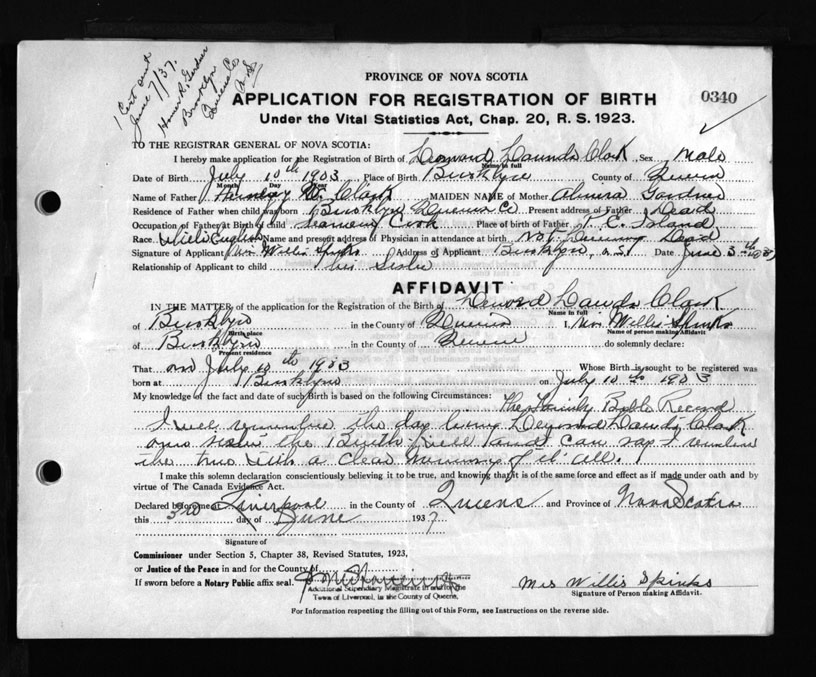 1 Cert out
June 7/37.
Homer R. Gardner
Brooklyn
Queens Co
N.S.
PROVINCE OF NOVA SCOTIA
APPLICATION FOR REGISTRATION OF BIRTH
0340
Under the Vital Statistics Act, Chap. 20, R. S. 1923.
TO THE REGISTRAR GENERAL OF NOVA SCOTIA:
I hereby make application for the Registration of Birth of Clark Sex Male
Name in full
Date of Birth July 10th 1903 Place of Birth Brooklyn County of Queens
Month Day Year
Name of Father Clark MAIDEN NAME of Mother Almira Gardner
Residence of Father when child was born Brooklyn Queens Co Present address of Father Dead
Occupation of Father at Birth of child Cook Place of birth of Father P. E. Island
Race White English Name and present address of Physician in attendance at birth Not Dead
Signature of Applicant Mrs Willis Spinks Address of Applicant Brooklyn, N.S. Date June 3rd
Relationship of Applicant to child his Sister
AFFIDAVIT
IN THE MATTER of the application for the Registration of the Birth of Clark
Name in full
of Brooklyn in the County of Queens I, Mrs Willis Spinks
Birth place Name of person making Affidavit
of Brooklyn in the County of Queens do solemnly declare:
Present residence
That on July 10th 1903 Whose Birth is sought to be registered was
born at Brooklyn on July 10th 1903
My knowledge of the fact and date of such Birth is based on the following Circumstances: The Family Bible Record
I well remember the day Clark
was the Birth and can say I
the with a clear memory of it all.
I make this solemn declaration conscientiously believing it to be true, and knowing that it is of the same force and effect as if made under oath and by
virtue of The Canada Evidence Act.
Declared before me at Liverpool in the County of Queens and Province of Nova Scotia
this 3rd day of June 1937
Signature of
Commissioner under Section 5, Chapter 38, Revised Statutes, 1923,
or Justice of the Peace in and for the County of
If sworn before a Notary Public affix seal.
Mrs Willis Spinks
Additional Stipendiary Magistrate in and for the
Signature of Person making Affidavit.
Town of Liverpool, in the County of Queens.
For Information respecting the filling out of this Form, see Instructions on the reverse side.